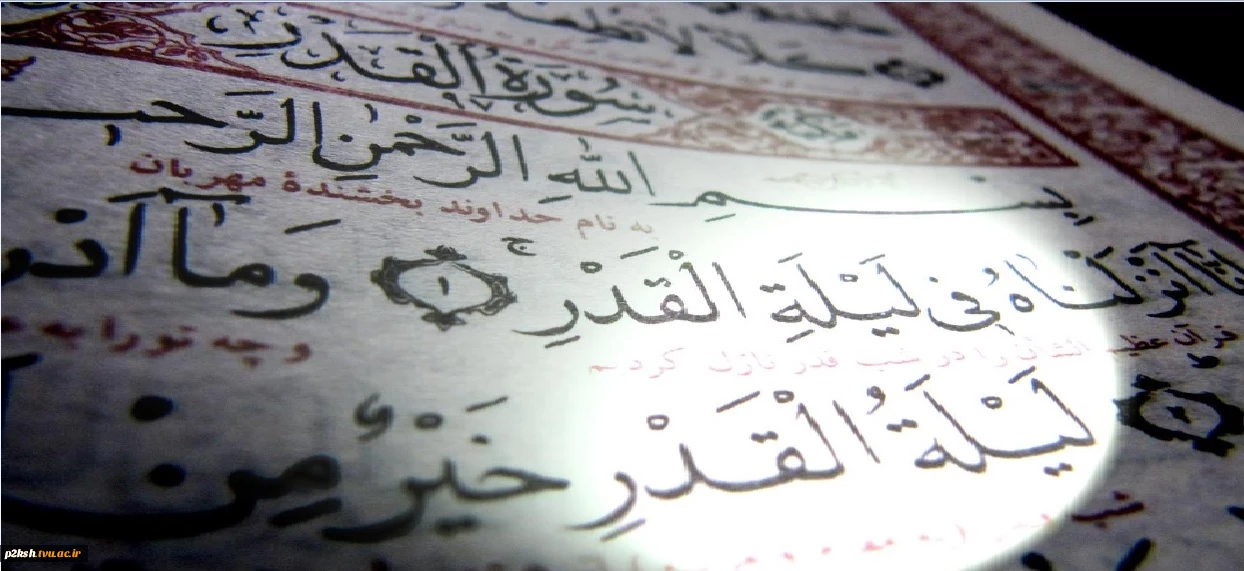 سُورَةُ الْقَدْرِ
بِسْمِ اللَّهِ الرَّحْمٰنِ الرَّحِيـ
به نام خداوند بخشندهٔ مهربان
اِنَّآ اَنْزَلْنَاهُ فِى لَيْلَةِ الْقَدْرِ ۚ ١ وَمَآ
قرآن عظیم الشأن را در شب قدر نازل کردیم
و چه تو را به
٢ لَيْلَةُ الْقَدْرِ خَيْرٌ مِنْ
p2ksh.tvu.ac.ir